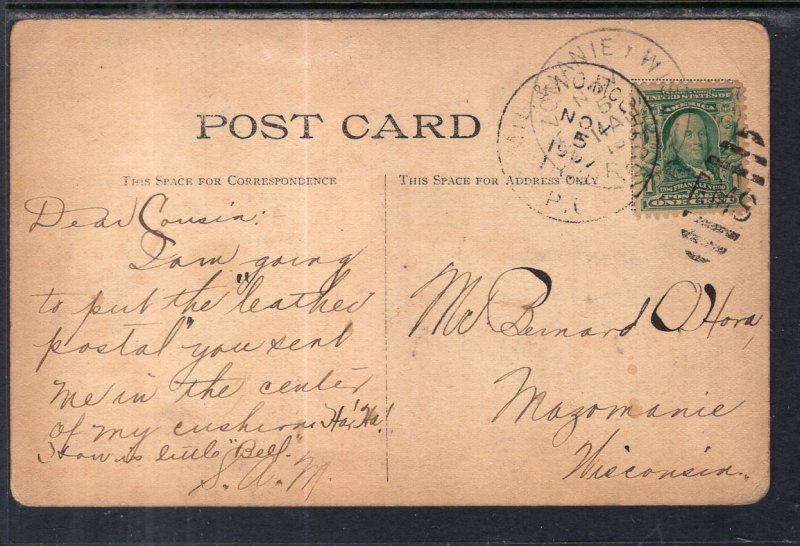 POST CARD
THIS SPACE FOR CORRESPONDENCE
THIS SPACE FOR ADDRESS ONLY
Dear Cousin;
I am going
to put the "leather
postal" you sent
me in the center
of my cushion Ha! Ha!
How is little "Bell".
S. A. M.
Mr. Bernard O'Hora,
Mazomanie
Wisconsin.
NOV
5
1907
UNITED STATES OF
AMERICA
1706 FRANKLIN 1790
POSTAGE
ONE CENT